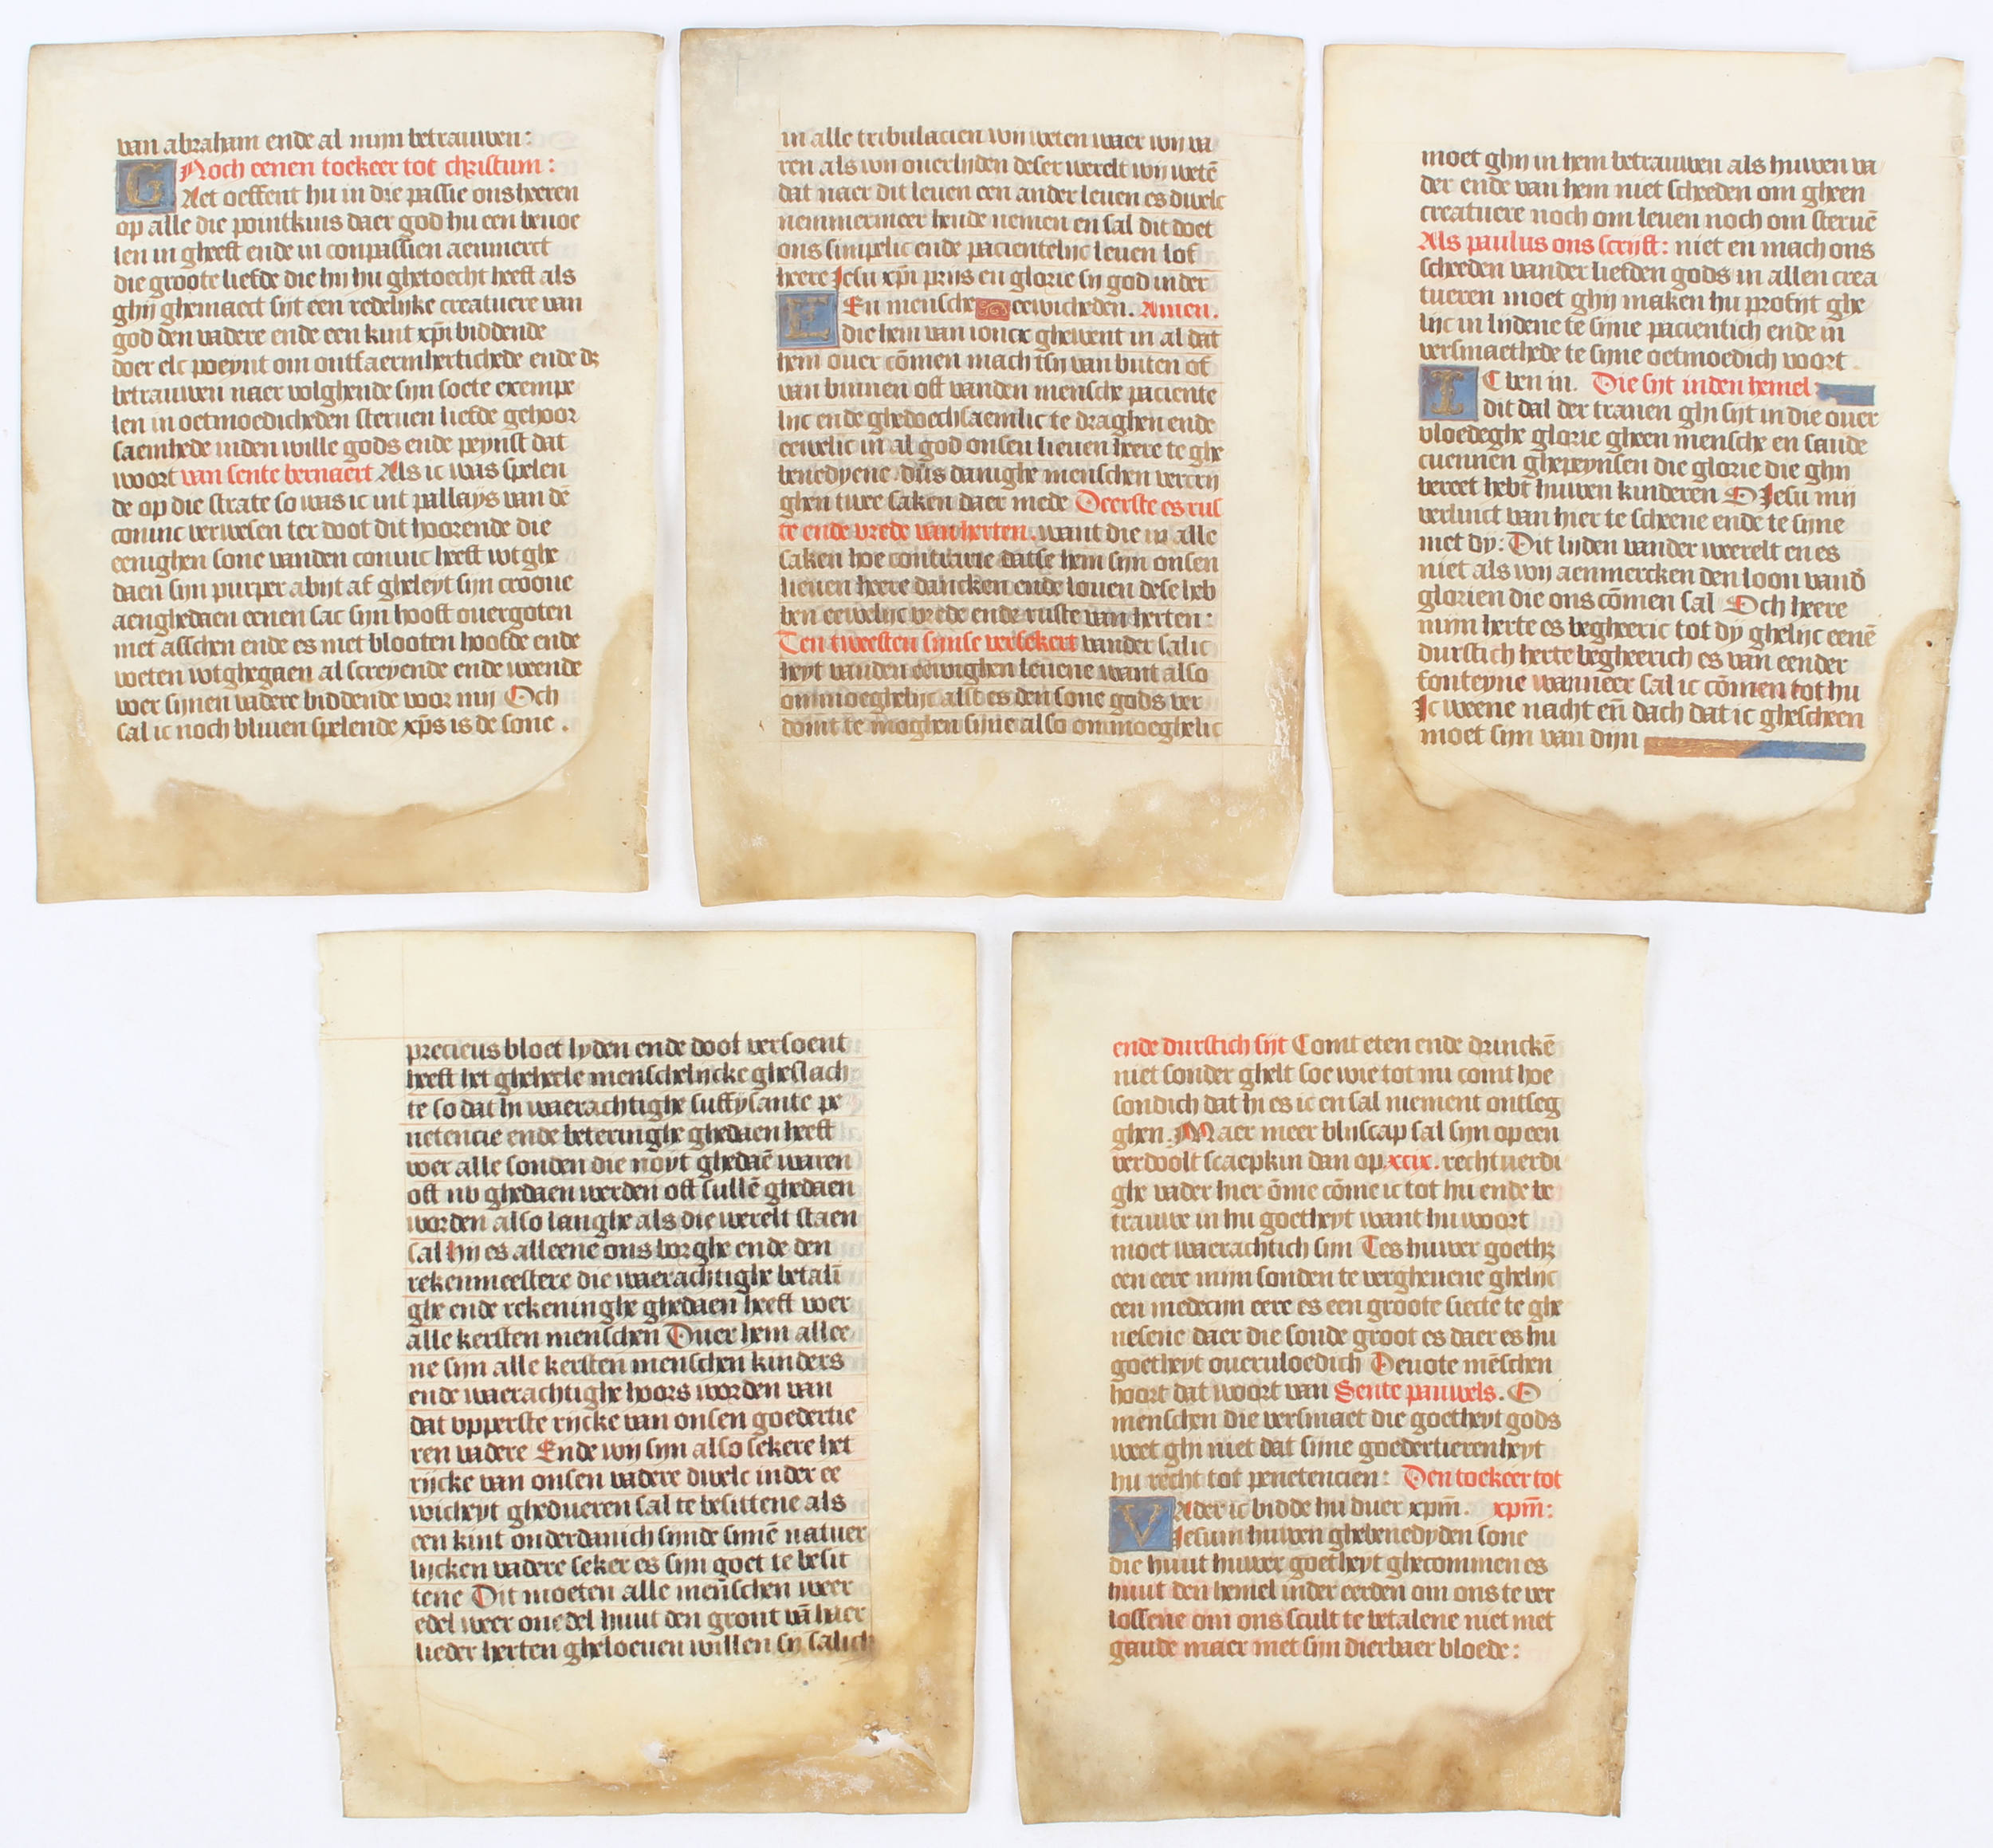 van abraham ende al mijn betrauwen:
Noch eenen toekeer tot christum:
GAet oeffent hu in die passie ons heeren
op alle die pointkins daer god hu een beuoe
len in gheeft ende in conpassien aenmerct
die groote liefde die hij hu ghetoecht heeft als
ghij ghemaect sijt een redelijke creatuere van
god den vadere ende een kint xpi biddende
doer elc poeynt om ontfaermhertichede ende
betrauwen naer volghende sijn soete exempe
len in oetmoedicheden steruen liefde gehoor
saemhede inden wille gods ende peynst dat
woort van sente bernaert Als ic was spelen
de op die strate so was ic int pallays van dē
coninc verwesen ter doot dit hoorende die
eenighen sone vanden coninc heeft wtghe
daen sijn purper abijt af gheleyt sijn croone
aenghedaen eenen sac sijn hooft ouergoten
met asschen ende es met blooten hoofde ende
voeten wtghegaen al screyende ende weende
voer sijnen vadere biddende voor mij Och
sal ic noch bliuen spelende xps is de sone.
in alle tribulacien wij weten waer wij va
ren als wij ouerlijden deser werelt wij wetē
dat naer dit leuen een ander leuen es dwelc
nemmermeer hende nemen en sal dit doet
ons simpelic ende pacientelijc leuen lof
heere Jesu xpi prijs en glorie sij god in der
EEn mensche eewicheden. Amen.
die hem van ioncx ghewent in al dat
hem ouer cōmen mach tsij van buten of
van binnen oft vanden mensche paciente
lijc ende ghedoechsaemlic te draghen ende
eewelic in al god onsen lieuen heere te ghe
benedyene dūs danighe menschen vercrij
ghen twee saken daer mede Deerste es rus
te ende vrede van herten. want die in alle
saken hoe contrarie datse hem sijn onsen
lieuen heere dancken ende louen dese heb
ben eewelijc vrede ende ruste van herten:
Ten tweesten sijnse versekert vander salic
heyt vanden eewighen leuene want also
onmoeghelijc alst es den sone gods ver
domt te moghen sijne also onmoeghelic
moet ghij in hem betrauwen als huwen va
der ende van hem niet scheeden om gheen
creatuere noch om leuen noch om steruē
Als paulus ons scrijft: niet en mach ons
scheeden vander liefden gods in allen crea
tueren moet ghij maken hu profijt ghe
lijc in lijdene te sijne pacientich ende in
versmaethede te sijne oetmoedich voort
IC ben in. Die sijt inden hemel
dit dal der tranen ghij sijt in die ouer
vloedeghe glorie gheen mensche en saude
cuennen ghepeynsen die glorie die ghij
bereet hebt huwen kinderen O Jesu mij
verlinct van hier te scheene ende te sijne
met dy: Dit lijden vander weerelt en es
niet als wij aenmercken den loon vand
glorien die ons cōmen sal Och heere
mijn herte es begheeric tot dy ghelijc eenē
durstich herte begheerich es van eender
fonteyne wanneer sal ic cōmen tot hu
Ic weene nacht en dach dat ic ghescheen
moet sijn van dijn
precieus bloet lyden ende doot versoent
heeft het gheheele menschelijcke gheslach
te so dat hi waerachtighe suffysante pe
netencie ende beteringhe ghedaen heeft
voer alle sonden die noyt ghedaē waren
oft nv ghedaen werden oft sullē ghedaen
worden also langhe als die werelt staen
sal Hij es alleene ons borghe ende den
rekenmeestere die waerachtighe betali
ghe ende rekeninghe ghedaen heeft voer
alle kersten menschen Duer hem allee
ne sijn alle kersten menschen kinders
ende waerachtighe hoors worden van
dat vpperste rijcke van onsen goedertie
ren vadere Ende wij sijn also sekere het
rijcke van onsen vadere dwelc inder ee
wicheyt ghedueren sal te besittene als
een kint onderdanich sijnde sijnē natuer
lijcken vadere seker es sijn goet te besit
tene Dit moeten alle menschen weer
edel weer onedel huut den gront vā haer
lieder herten gheloeuen willen sij salich
ende durstich sijt Comt eten ende drinckē
niet sonder ghelt soe wie tot mi comt hoe
sondich dat hi es ic en sal niement ontseg
ghen. Maer meer blijscap sal sijn op een
verdoolt scaepkin dan op xcix. rechtuerdi
ghe vader hier ōme cōme ic tot hu ende be
trauwe in hu goetheyt want hu woort
moet waerachtich sijn Tes huwer goeth
een eere mijn sonden te vergheuene ghelijc
een medecijn eere es een groote siecte te ghe
nesene daer die sonde groot es daer es hu
goetheyt oueruloedich Deuote mēschen
hoort dat woort van Sente pauwels. O
menschen die versmaet die goetheyt gods
weet ghi niet dat sijne goedertierenheyt
hu recht tot penetencien: Den toekeer tot
VAder ic bidde hu duer xpm. xpm:
Jesum huwen ghebenedyden sone
die huut huwer goetheyt ghecommen es
huut den hemel inder eerden om ons te ver
lossene om ons scult te betalene niet met
gaude maer met sijn dierbaer bloede: